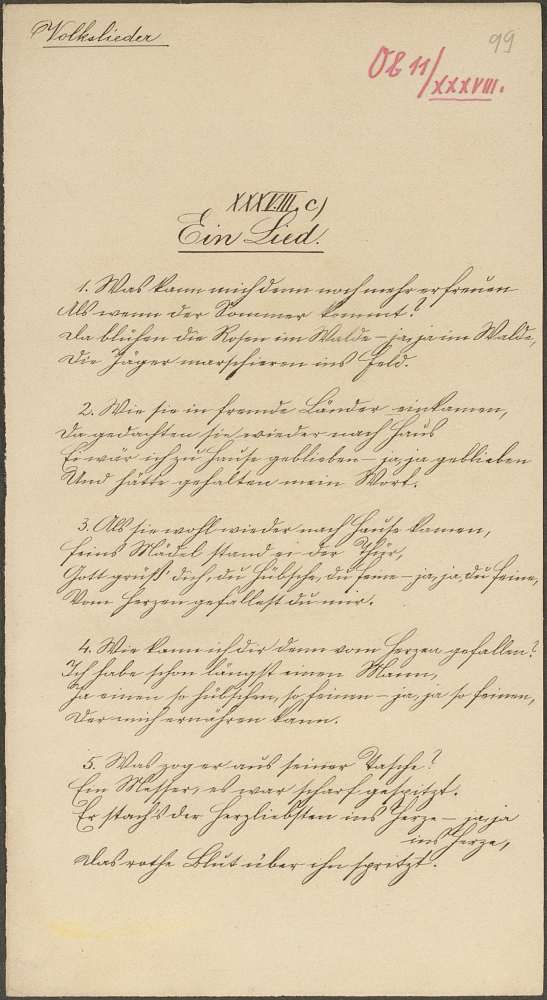 Volkslieder
99
Ob 11/XXXVIII.
XXXVIII. c)
Ein Lied.
1. Was kann mich denn noch mehr erfreuen
Als wenn der Sommer kommt?
Da blühen die Rosen im Walde – ja, ja im Walde,
Die Jäger marschieren ins Feld.
2. Wie sie in fremde Länder einkamen,
Da gedachten sie wieder nach Haus
Ei wär ich zu Hause geblieben – ja, ja geblieben
Und hätte gehalten mein Wort.
3. Als sie wohl wieder nach Hause kamen,
Feins Mädel stand ei der Thür,
Gott grüß' dich, du Hübsche, du Feine – ja, ja du Feine,
Vom Herzen gefallest du mir.
4. Wie kann ich dir denn vom Herzen gefallen?
Ich habe schon längst einen Mann,
Ja einen so hübschen, so feinen – ja, ja so feinen,
Der mich ernähren kann.
5. Was zog er aus seiner Tasche?
Ein Messer, es war scharf gespitzt.
Er stach's der Herzliebsten ins Herze – ja, ja
ins Herze,
Das rothe Blut über ihn spritzt.